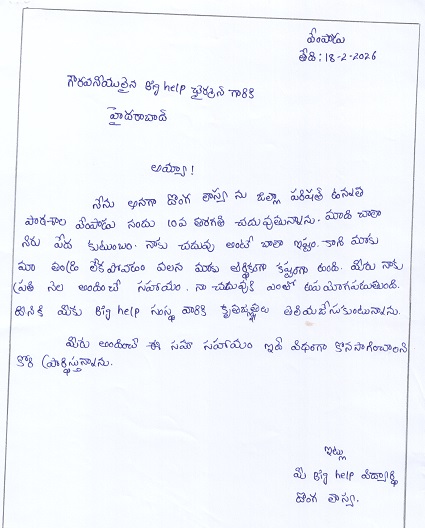 వేంపాడు
తేది: 18-2-2026
గౌరవనీయులైన Big help ఛైర్మన్ గారికి
హైదరాబాద్
అమ్మా!
నేను అనగా దొంగ లాస్య ను జిల్లా పరిషత్ ఉన్నత
పాఠశాల వేంపాడు నందు 10వ తరగతి చదువుతున్నాను. మాది చాలా
నిరు పేద కుటుంబం. నాకు చదువు అంటే చాలా ఇష్టం. కాని మాకు
మా తండ్రి లేకపోవడం వలన మాకు ఆర్థికంగా కష్టంగా ఉంది. మీరు నాకు
ప్రతి నెల అందించే సహాయం. నా చదువుకి ఎంతో ఉపయోగపడుతుంది.
దీనికి మీకు Big help సంస్థ వారికి కృతజ్ఞతలు తెలియజేసుకుంటున్నాను.
మీరు అందించే ఈ సహాయం ఇదే విధంగా కొనసాగించాలని
కోరి ప్రార్థిస్తున్నాను.
ఇట్లు
మీ Big help విద్యార్థి
దొంగ లాస్య.